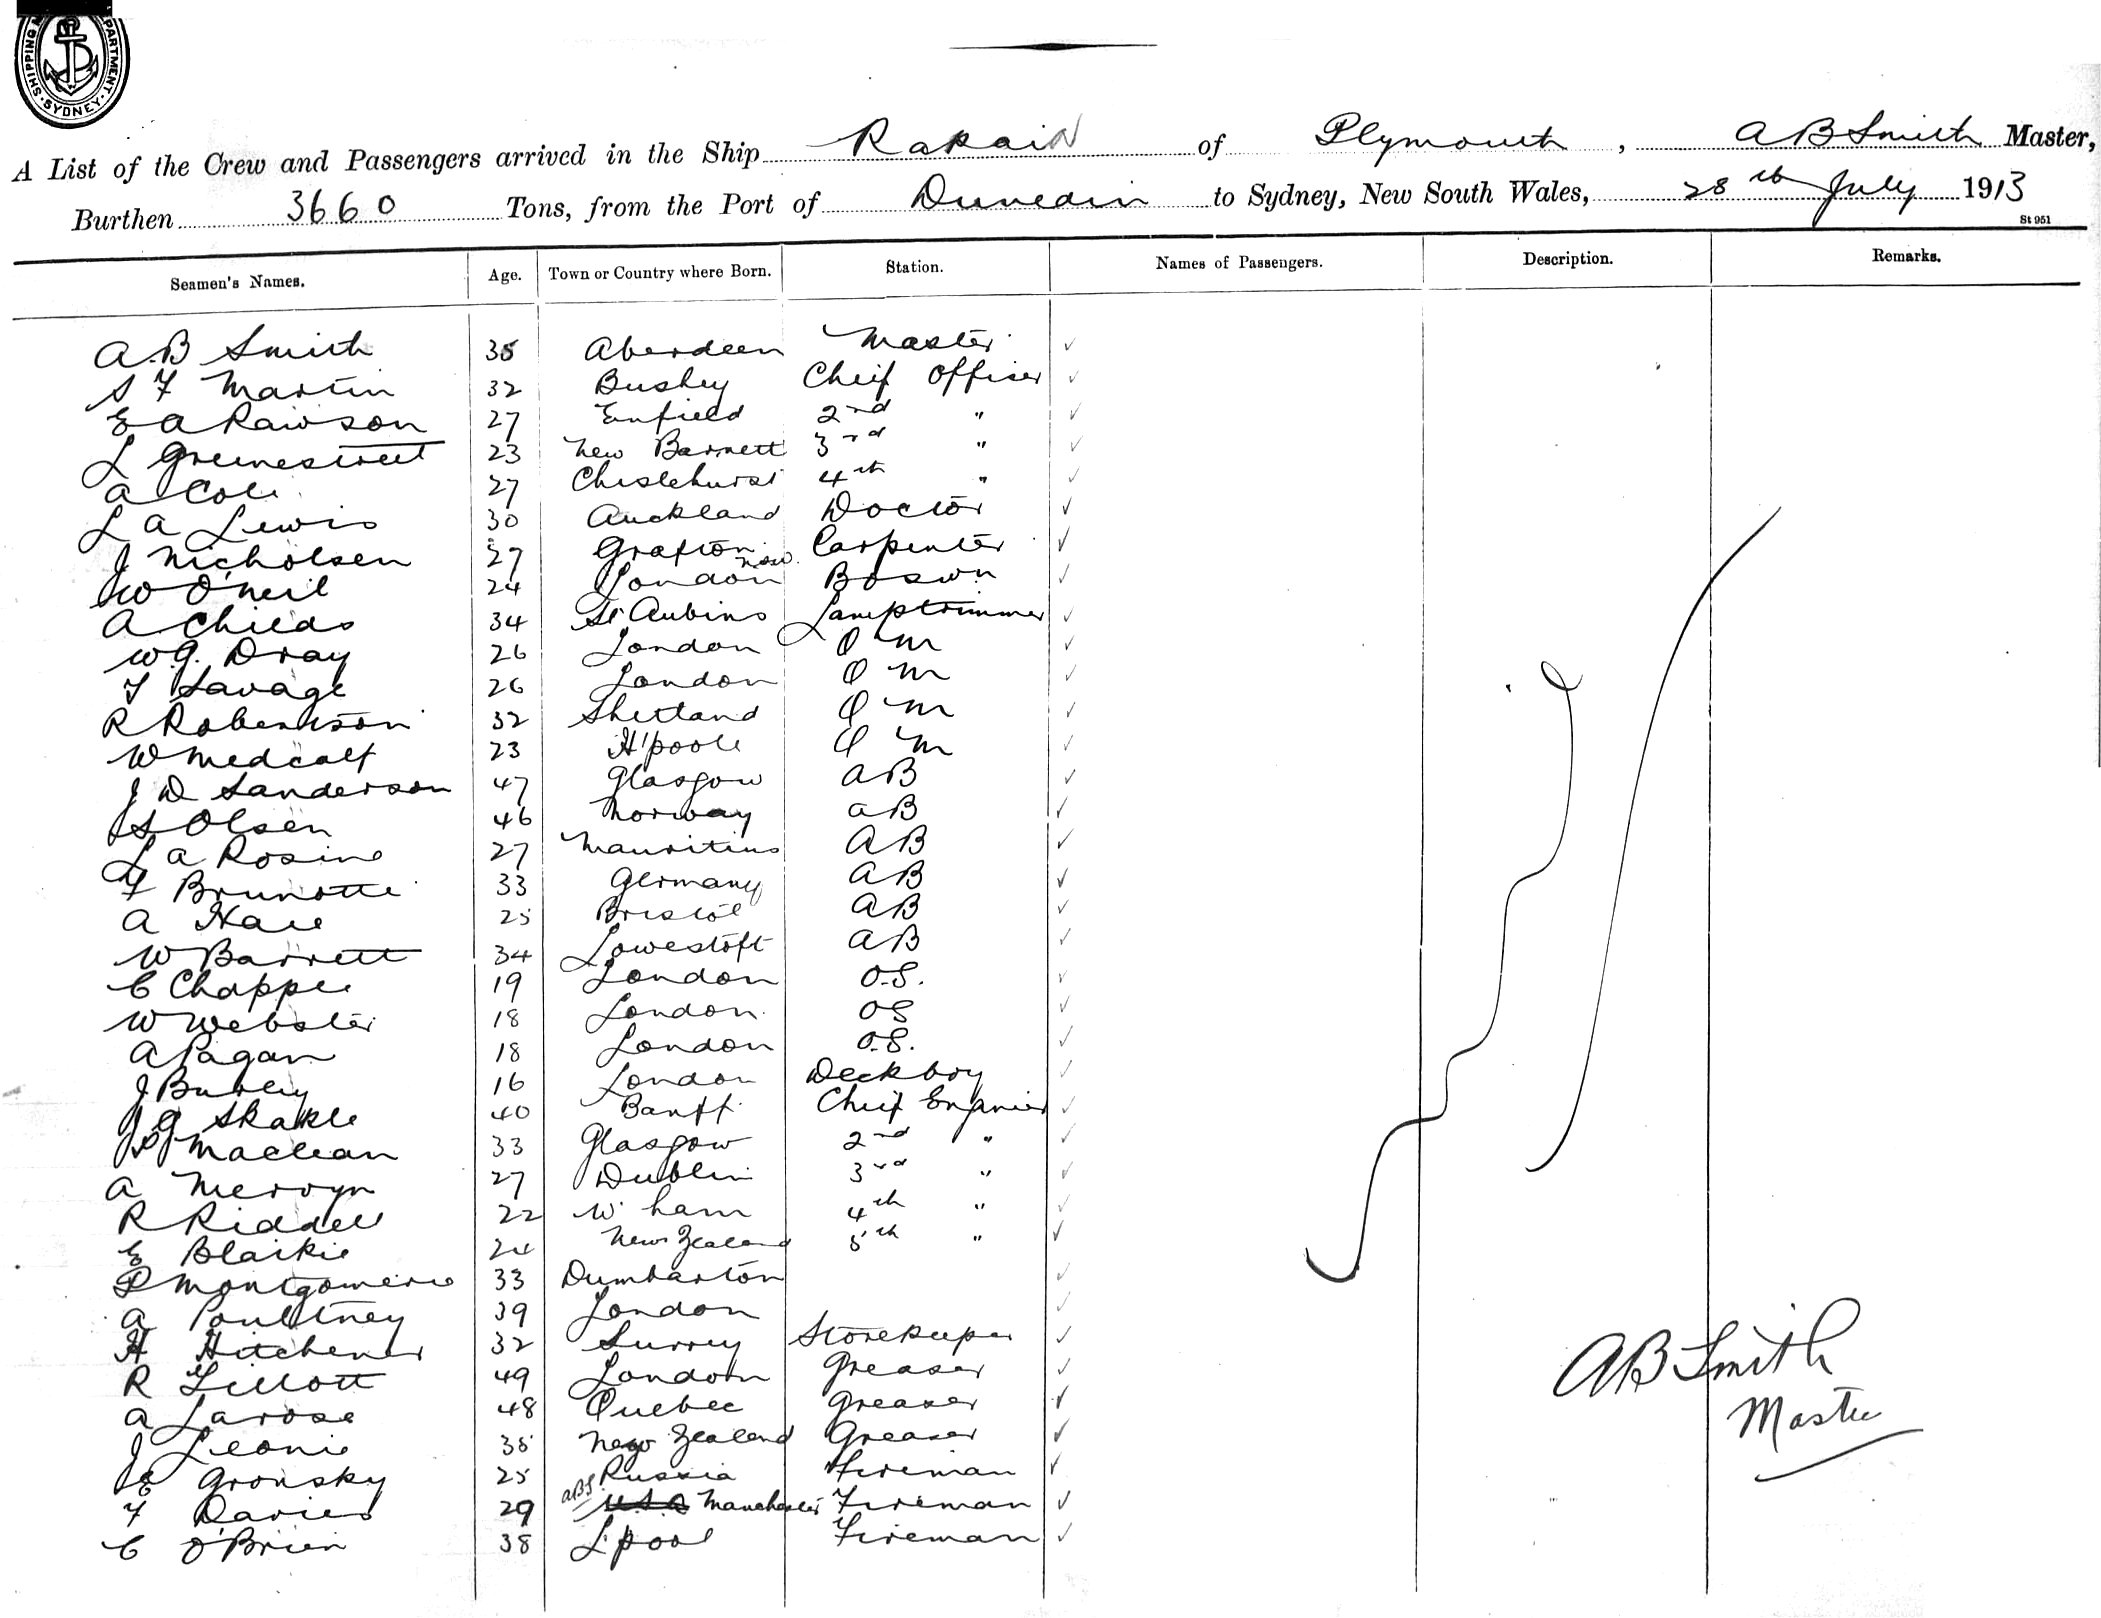 SHIPPING DEPARTMENT SYDNEY
A List of the Crew and Passengers arrived in the Ship Rakaia of Plymouth, A B Smith Master,
Burthen 3660 Tons, from the Port of Dunedin to Sydney, New South Wales, 28th July 1913
St 951
Seamen's Names. Age. Town or Country where Born. Station. Names of Passengers. Description. Remarks.
A.B Smith 35 Aberdeen Master
S F Martin 32 Bushey Cheif Officer
E A Rawson 27 Enfield 2nd "
L Greenestreet 23 New Barnett 3rd "
A Cole 27 Chislehurst 4th "
L A Lewis 30 Auckland Doctor
J Nicholsen 27 Grafton NSW. Carpenter
W O'Neil 24 London Boswn
A Childs 34 St Aubins Lamptrimmer
W.G. Dray 26 London Q M
F Savage 26 London Q M
R Robertson 32 Shetland Q M
W Medcalf 23 H'pool Q M
J D Sanderson 47 Glasgow AB
S Olsen 46 Norway AB
L A Rosine 27 Mauritius AB
F Brunotte 33 Germany AB
A Hall 25 Bristol AB
W Barrett 34 Lowestoft AB
C Chapple 19 London O.S.
W Webster 18 London OS
A Pagan 18 London O.S.
J Burley 16 London Deckboy
J G Skakle 40 Banff Cheif Engineer
P J Maclean 33 Glasgow 2nd "
A Mervyn 27 Dublin 3rd "
R Riddell 22 W. ham 4th "
E Blaikie 24 New Zealand 5th "
P Montgomerie 33 Dumbarton
A Poultney 39 London
H Hitchener 32 Surrey Storekeeper
R Tillott 49 London Greaser
A Larose 48 Quebec Greaser
J Leonie 35 New Zealand Greaser
E Gronsky 25 Russia Fireman
F Davies 29 ABS. U.S.A Manchester Fireman
C O'Brien 38 L'pool Fireman
A B Smith
Master